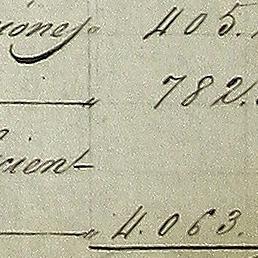 iones„ 405.
„ 782.
cient
„ 4.063.